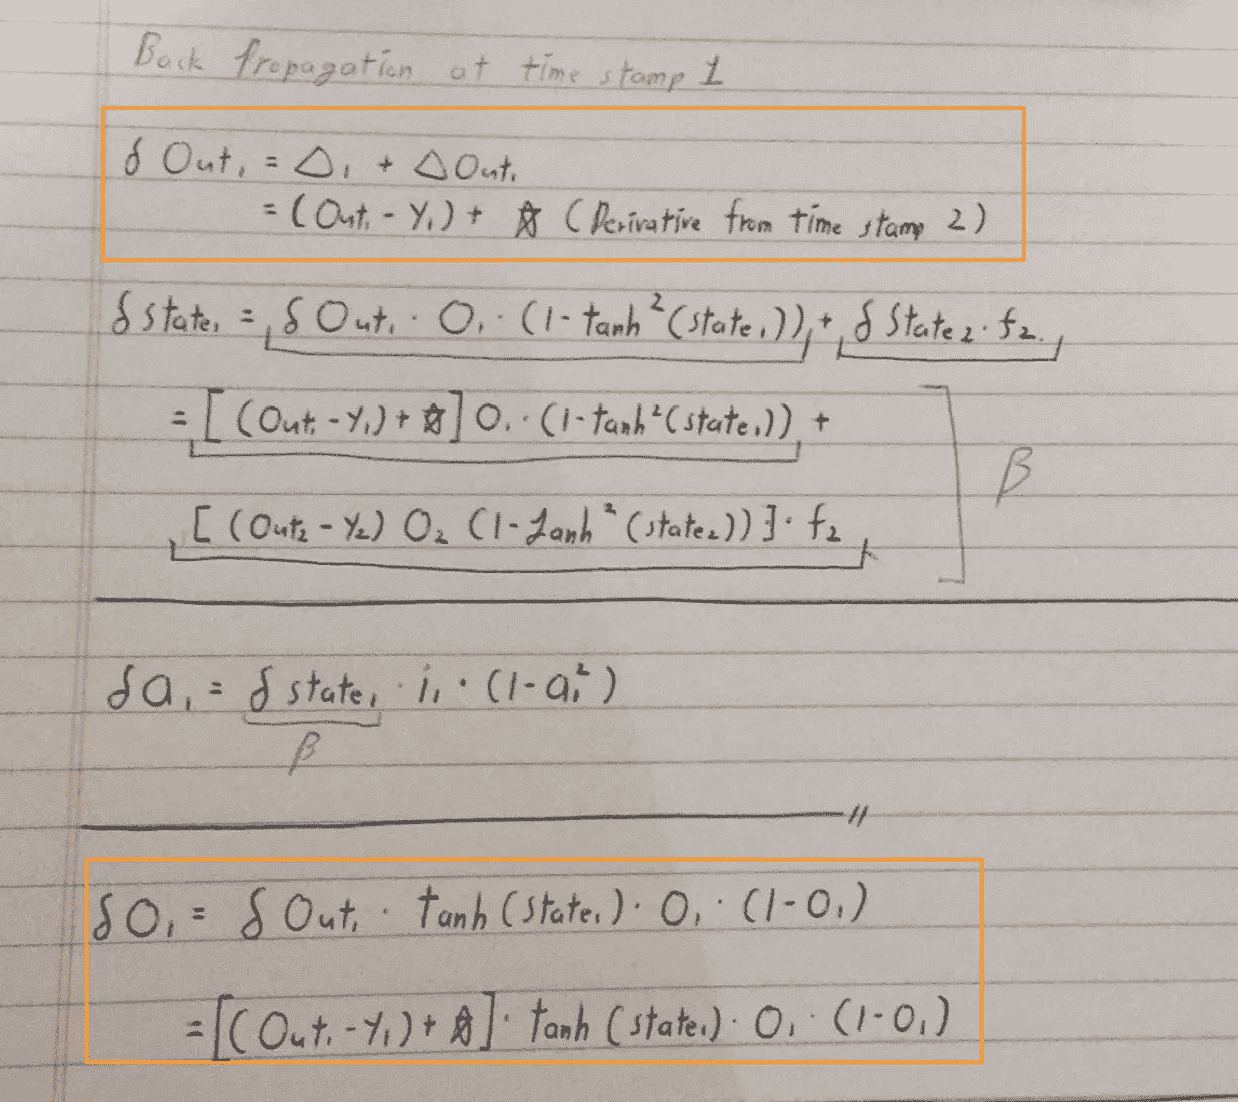 Back propagation at time stamp 1
δ Out₁ = △₁ + △Out₁
= (Out₁ - Y₁) + ☆ (Derivative from time stamp 2)
δ state₁ = δ Out₁ · O₁ · (1 - tanh²(state₁)) + δ State₂ · f₂.
= [(Out₁ - Y₁) + ☆] O₁ · (1 - tanh²(state₁)) +
β
[(Out₂ - Y₂) O₂ (1 - tanh²(state₂))] · f₂
δa₁ = δ state₁ · i₁ · (1 - a₁²)
β
δO₁ = δ Out₁ · tanh(state₁) · O₁ · (1 - O₁)
= [(Out₁ - Y₁) + ☆] · tanh(state₁) · O₁ · (1 - O₁)